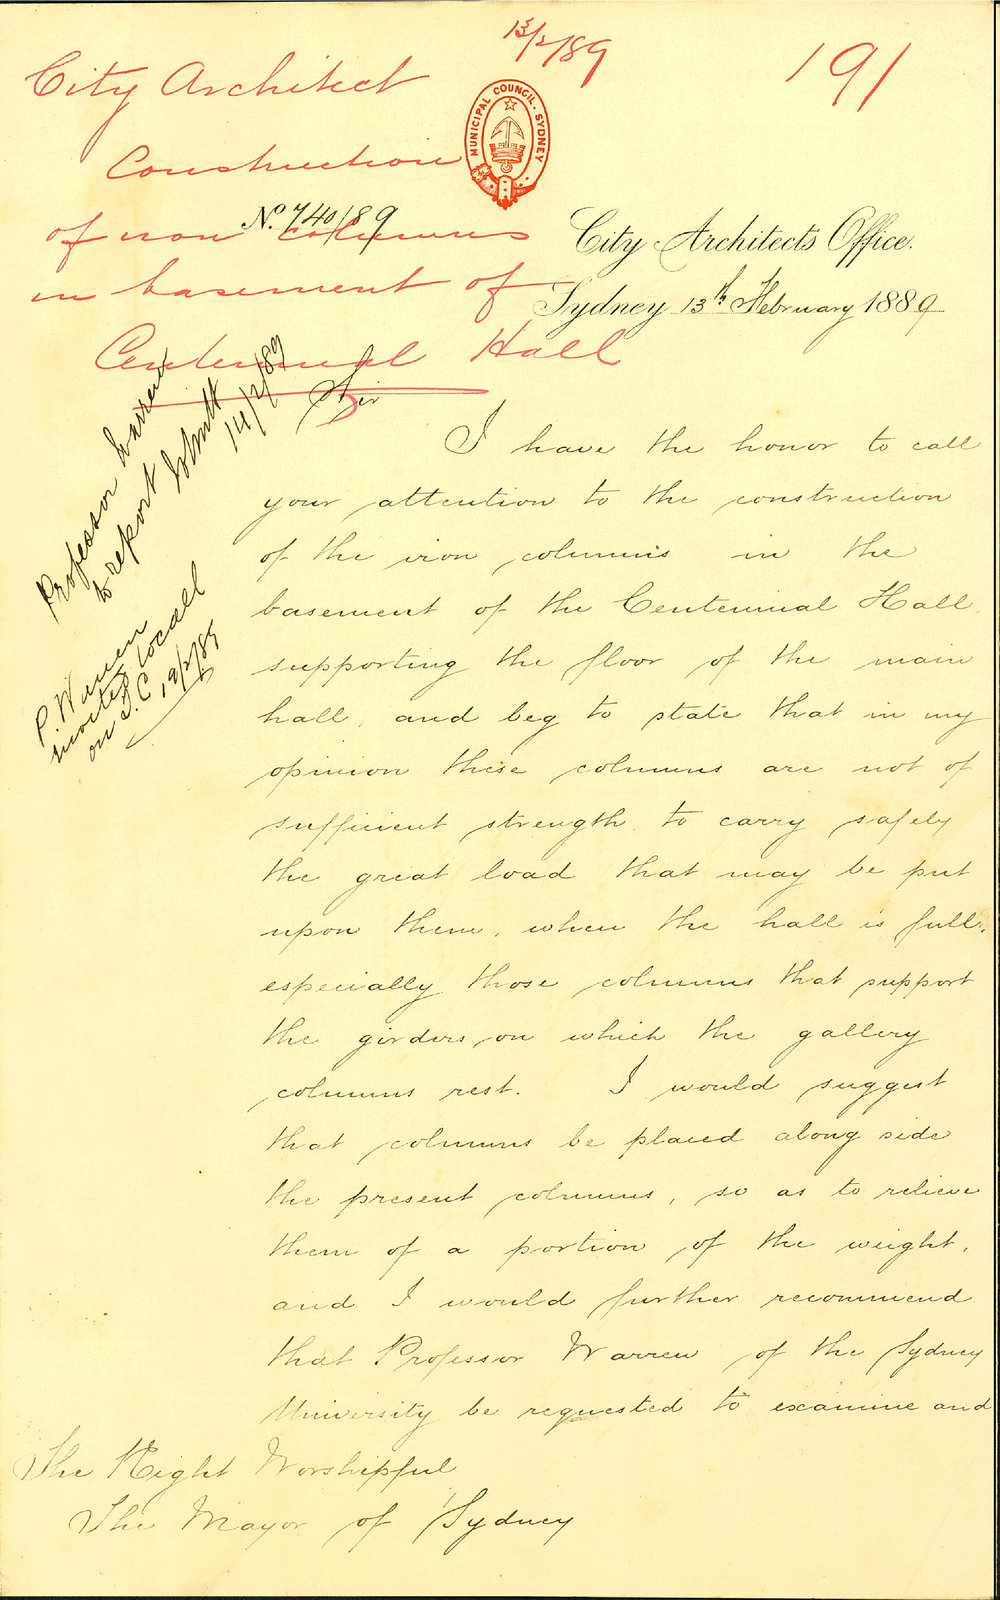 13/2/89
191
City Architect
Construction
of iron columns
in basement of
Centennial Hall
MUNICIPAL COUNCIL · SYDNEY
No. 740/89
City Architects Office.
Sydney 13th February 1889
Professor Warren
to report
14/2/89
P. Warren
invited to call
on T.C 19/2/89
Sir
I have the honor to call
your attention to the construction
of the iron columns in the
basement of the Centennial Hall,
supporting the floor of the main
hall, and beg to state that in my
opinion these columns are not of
sufficient strength to carry safely
the great load that may be put
upon them, when the hall is full,
especially those columns that support
the girders on which the gallery
columns rest. I would suggest
that columns be placed along side
the present columns, so as to relieve
them of a portion of the weight,
and I would further recommend
that Professor Warren of the Sydney
University be requested to examine and
The Right Worshipful
The Mayor of Sydney